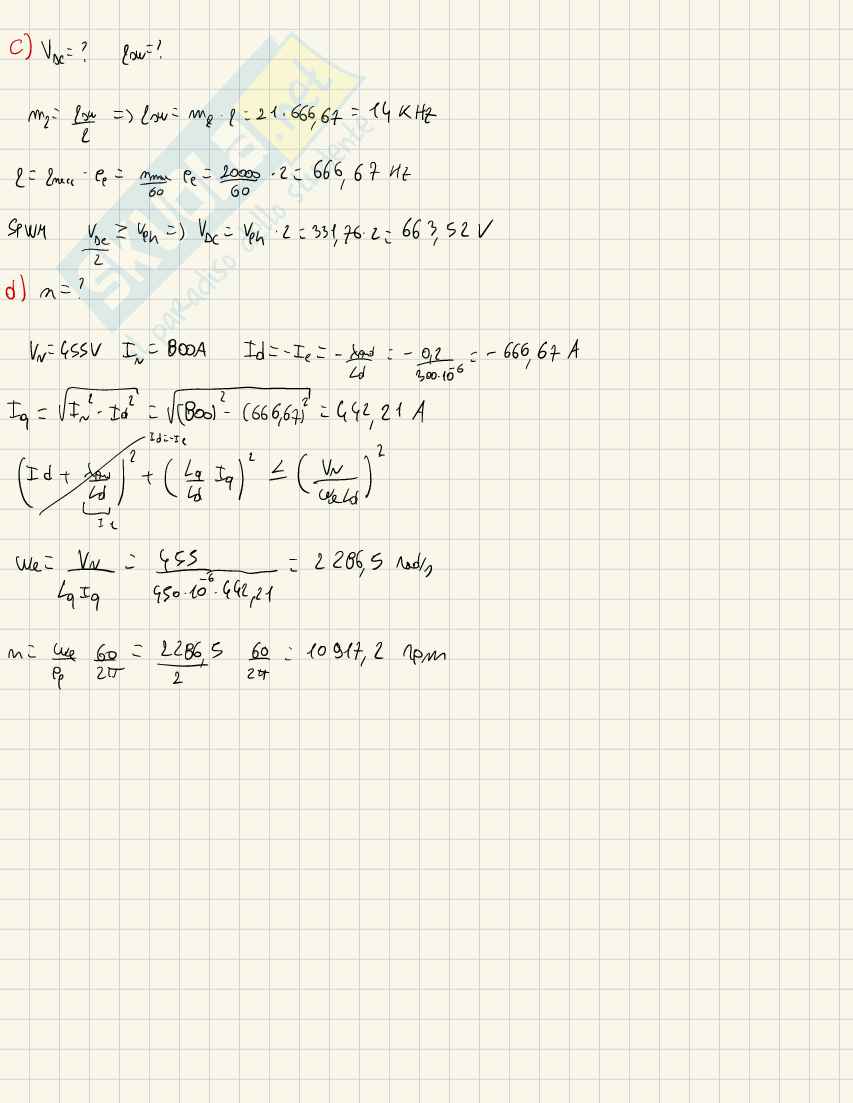 c) V_DC = ? f_sw = ?
m_f = f_sw/f => f_sw = m_f · f = 21 · 666,67 = 14 KHz
f = f_mecc · P_p = n_max/60 P_p = 20000/60 · 2 = 666,67 Hz
SPWM V_DC/2 ≥ V_ph => V_DC = V_ph · 2 = 331,76 · 2 = 663,52 V
d) n = ?
V_N = 455V I_N = 800A Id = -I_c = -λ_pm/Ld = -0,2/300·10^-6 = -666,67 A
Iq = √(I_N^2 - Id^2) = √((800)^2 - (666,67)^2) = 442,21 A
Id=-I_c
(Id + λ_pm/Ld)^2 + (Lq/Ld Iq)^2 ≤ (V_N/ωe Ld)^2
I_c
ωe = V_N/Lq Iq = 455/450·10^-6·442,21 = 2286,5 rad/s
n = ωe/P_p 60/2π = 2286,5/2 60/2π = 10917,2 rpm
SKUOLA.net
il paradiso dello studente